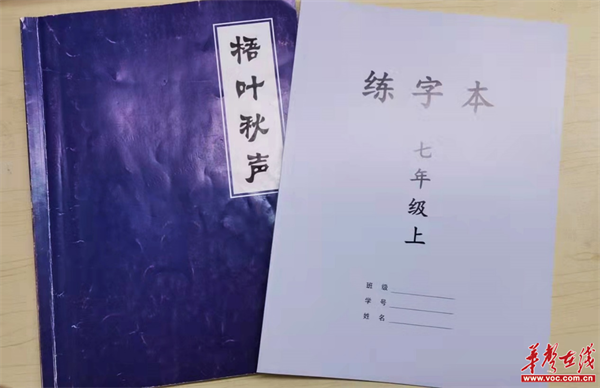 梧叶秋声
练字本
七年级上
班 级
学 号
姓 名
华声在线
www.voc.com.cn